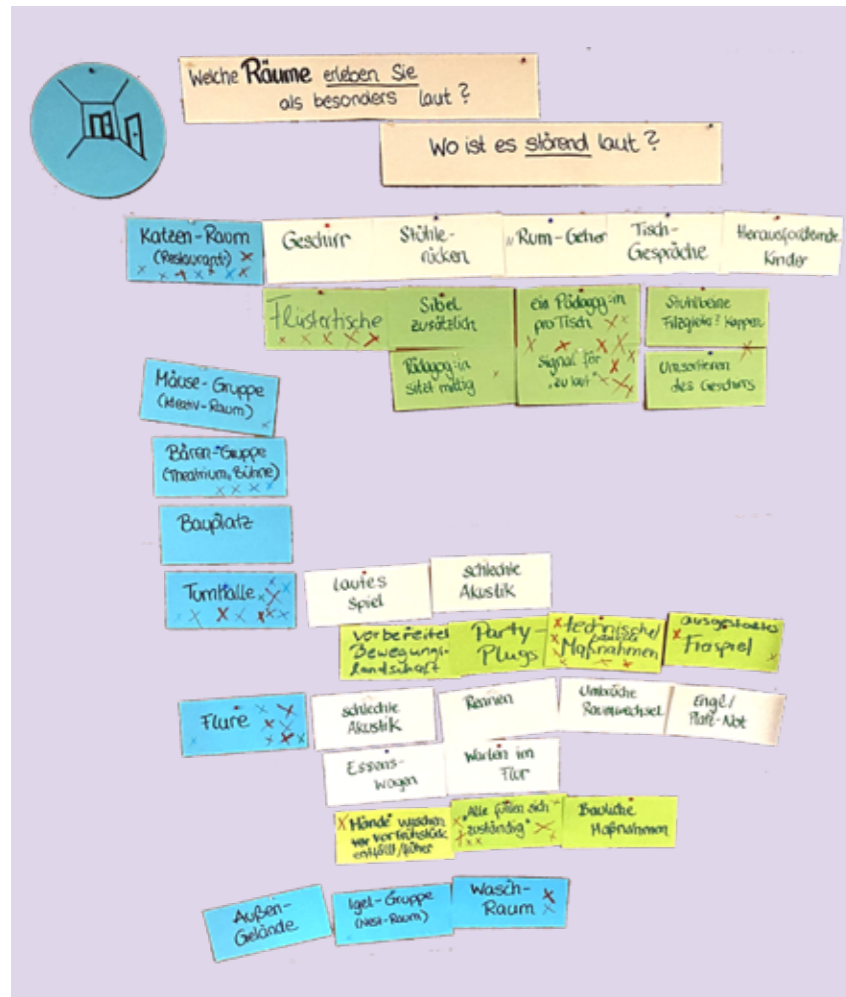 Welche Räume erleben Sie
als besonders laut?
Wo ist es störend laut?
Katzen-Raum
(Restaurant)
Geschirr
Stühle-
rücken
"Rum-Geher
Tisch-
Gespräche
Herausfordernde
Kinder
Flüstertische
Sibel
zusätzlich
ein Pädagog:in
pro Tisch
Stuhlbeine
Filzgleiter? Kappen
Pädagog:in
sitzt mittig
Signal für
"zu laut"
Umsortieren
des Geschirrs
Mäuse-Gruppe
(Kreativ-Raum)
Bären-Gruppe
(Theatrium, Bühne)
Bauplatz
Turnhalle
lautes
Spiel
schlechte
Akustik
vorbereitet
Bewegungs-
landschaft
Party-
Plugs
technische/
Maßnahmen
Flure
schlechte
Akustik
Rennen
Umbrüche
Raumwechsel
Enge/
Platz-Not
Essens-
wagen
Warten im
Flur
Hände waschen
vor Frühstück
entfällt/früher
"Alle fühlen sich
zuständig"
Bauliche
Maßnahmen
Außen-
Gelände
Igel-Gruppe
(Nest-Raum)
Wasch-
Raum